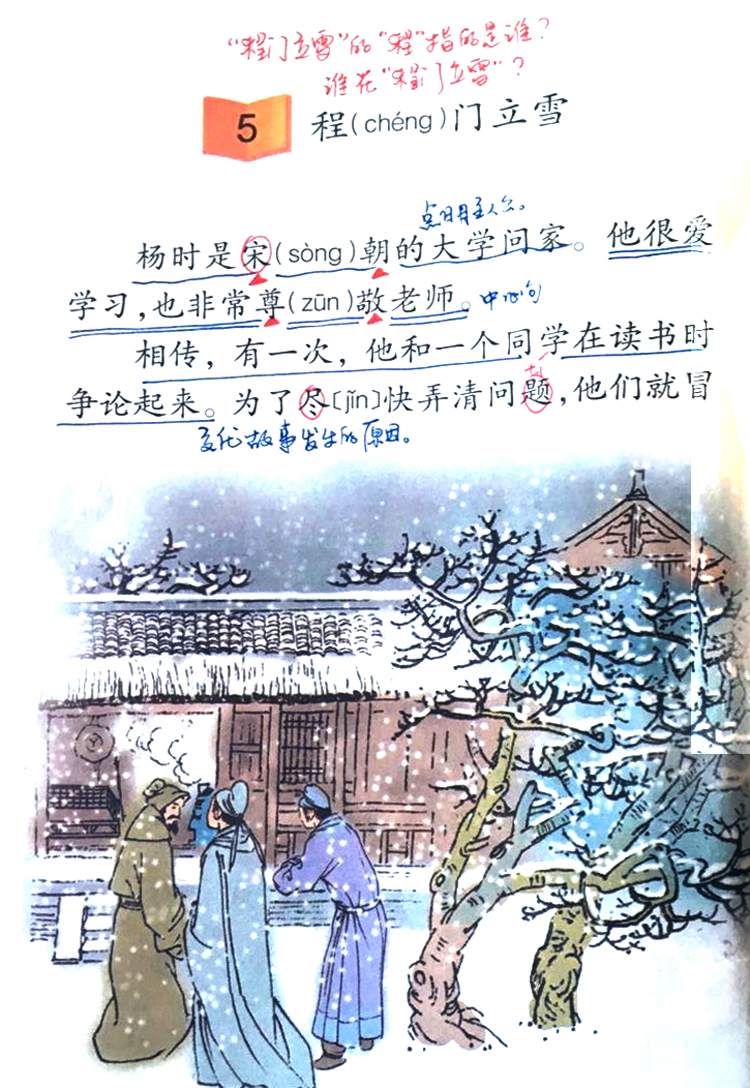 “程门立雪”的“程”指的是谁？
谁在“程门立雪”？
5 程(chéng)门立雪
点明主人公。
杨时是宋(sòng)朝的大学问家。他很爱
学习，也非常尊(zūn)敬老师。中心句
相传，有一次，他和一个同学在读书时
争论起来。为了尽〔jǐn〕快弄清问题，他们就冒
交代故事发生的原因。